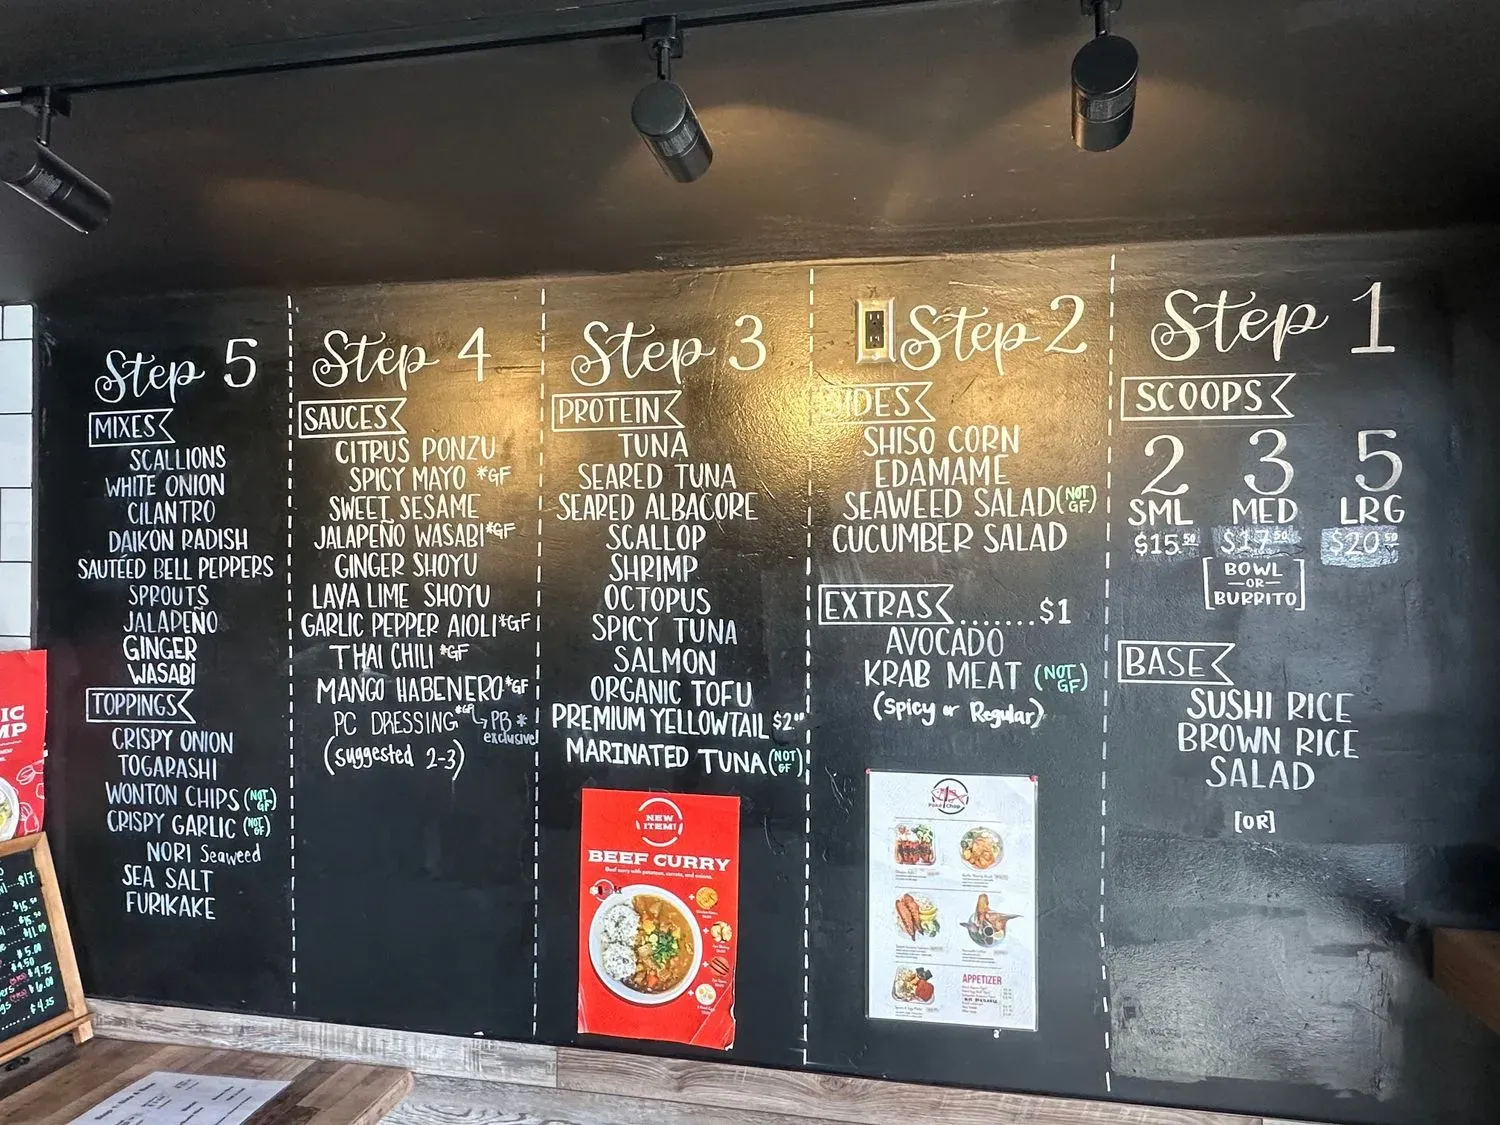 Step 5
MIXES
SCALLIONS
WHITE ONION
CILANTRO
DAIKON RADISH
SAUTÉED BELL PEPPERS
SPROUTS
JALAPEÑO
GINGER
WASABI
TOPPINGS
CRISPY ONION
TOGARASHI
WONTON CHIPS (NOT GF)
CRISPY GARLIC (NOT GF)
NORI Seaweed
SEA SALT
FURIKAKE
Step 4
SAUCES
CITRUS PONZU
SPICY MAYO *GF
SWEET SESAME
JALAPEÑO WASABI *GF
GINGER SHOYU
LAVA LIME SHOYU
GARLIC PEPPER AIOLI *GF
THAI CHILI *GF
MANGO HABENERO *GF
PC DRESSING *GF PB *
exclusive
(suggested 2-3)
Step 3
PROTEIN
TUNA
SEARED TUNA
SEARED ALBACORE
SCALLOP
SHRIMP
OCTOPUS
SPICY TUNA
SALMON
ORGANIC TOFU
PREMIUM YELLOWTAIL $2
MARINATED TUNA (NOT GF)
NEW
ITEM!
BEEF CURRY
Beef curry with potatoes, carrots, and onions.
Step 2
SIDES
SHISO CORN
EDAMAME
SEAWEED SALAD (NOT GF)
CUCUMBER SALAD
EXTRAS.......$1
AVOCADO
KRAB MEAT (NOT GF)
(Spicy or Regular)
Poke Chop
APPETIZER
Step 1
SCOOPS
2 3 5
SML MED LRG
$15.50 $17.50 $20.50
[BOWL
—OR—
BURRITO]
BASE
SUSHI RICE
BROWN RICE
SALAD
[OR]
IC
MP
$17
$15.50
$11.00
$5.00
$4.50
$4.75
$6.00
$4.25